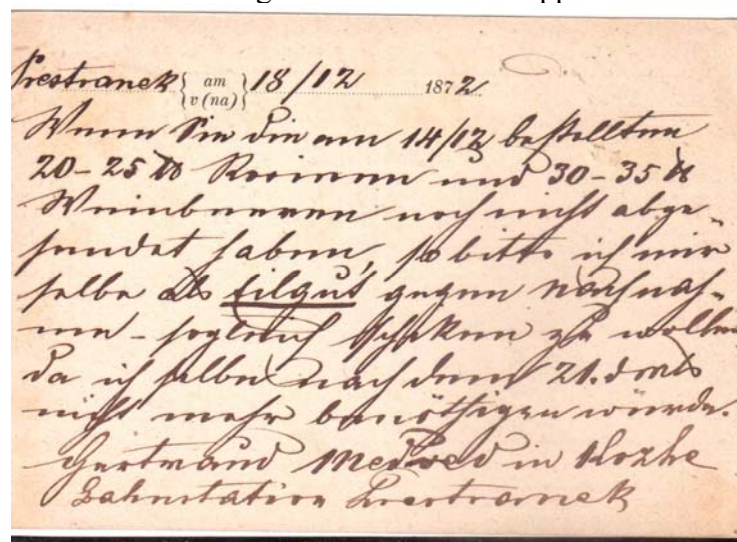 Prestranek { am v (na) } 18/12 1872
Wenn Sie die am 14/12 bestellten
20-25 ℔ Rosinen und 30-35 ℔
Weinbeeren noch nicht abge-
sendet haben, so bitte ich mir
selbe als Eilgut gegen Nachnah-
me - sogleich schicken zu wollen
da ich selbe nach dem 21. d mts
nicht mehr benöthigen würde.
Gertraud Medved in
Bahnstation Prestranek